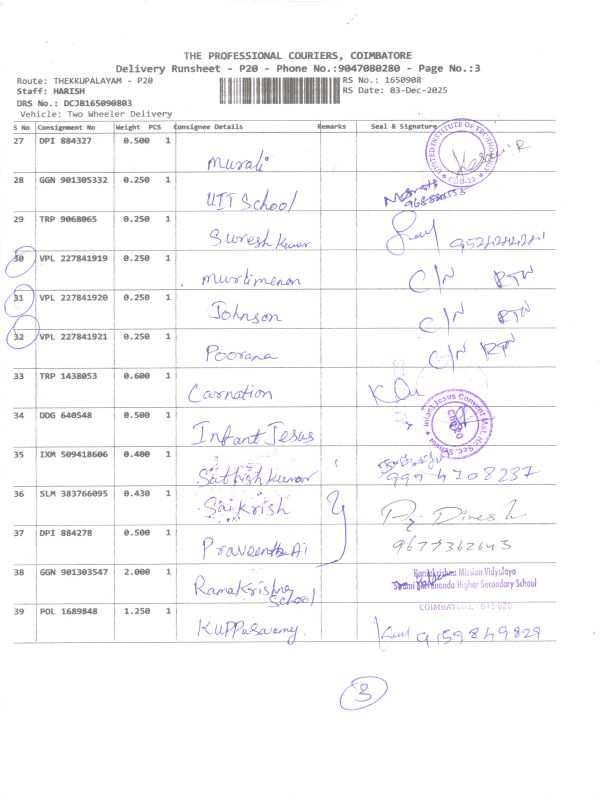 THE PROFESSIONAL COURIERS, COIMBATORE
Delivery Runsheet - P20 - Phone No.:9047080280 - Page No.:3
Route: THEKKUPALAYAM - P20 RS No.: 1650908
Staff: HARISH RS Date: 03-Dec-2025
DRS No.: DCJB165090803
Vehicle: Two Wheeler Delivery
S No Consignment No Weight PCS Consignee Details Remarks Seal & Signature
27 DPI 884327 0.500 1 Murali
UNITED INSTITUTE OF TECHNOLOGY CGB-20
28 GGN 901305332 0.250 1 UIT School
29 TRP 9068065 0.250 1 Suresh Kumar
30 VPL 227841919 0.250 1 murlimenon C/N RTN
31 VPL 227841920 0.250 1 Johnson C/N RTN
32 VPL 227841921 0.250 1 Poorana C/N RTN
33 TRP 1438053 0.600 1 Carnation
34 DDG 640548 0.500 1 Infant Jesus
Infant Jesus Convent Mat. Hr. Sec. School CBE-20
35 IXM 509418606 0.400 1 Sathish Kumar 9994708237
36 SLM 383766095 0.430 1 Saikrish
37 DPI 884278 0.500 1 9677362643
38 GGN 901303547 2.000 1 Ramakrishna School
Ramakrishna Mission Vidyalaya
Swami Shivananda Higher Secondary School
COIMBATORE - 641 020
39 POL 1689848 1.250 1 Kuppusamy 9159849829
3